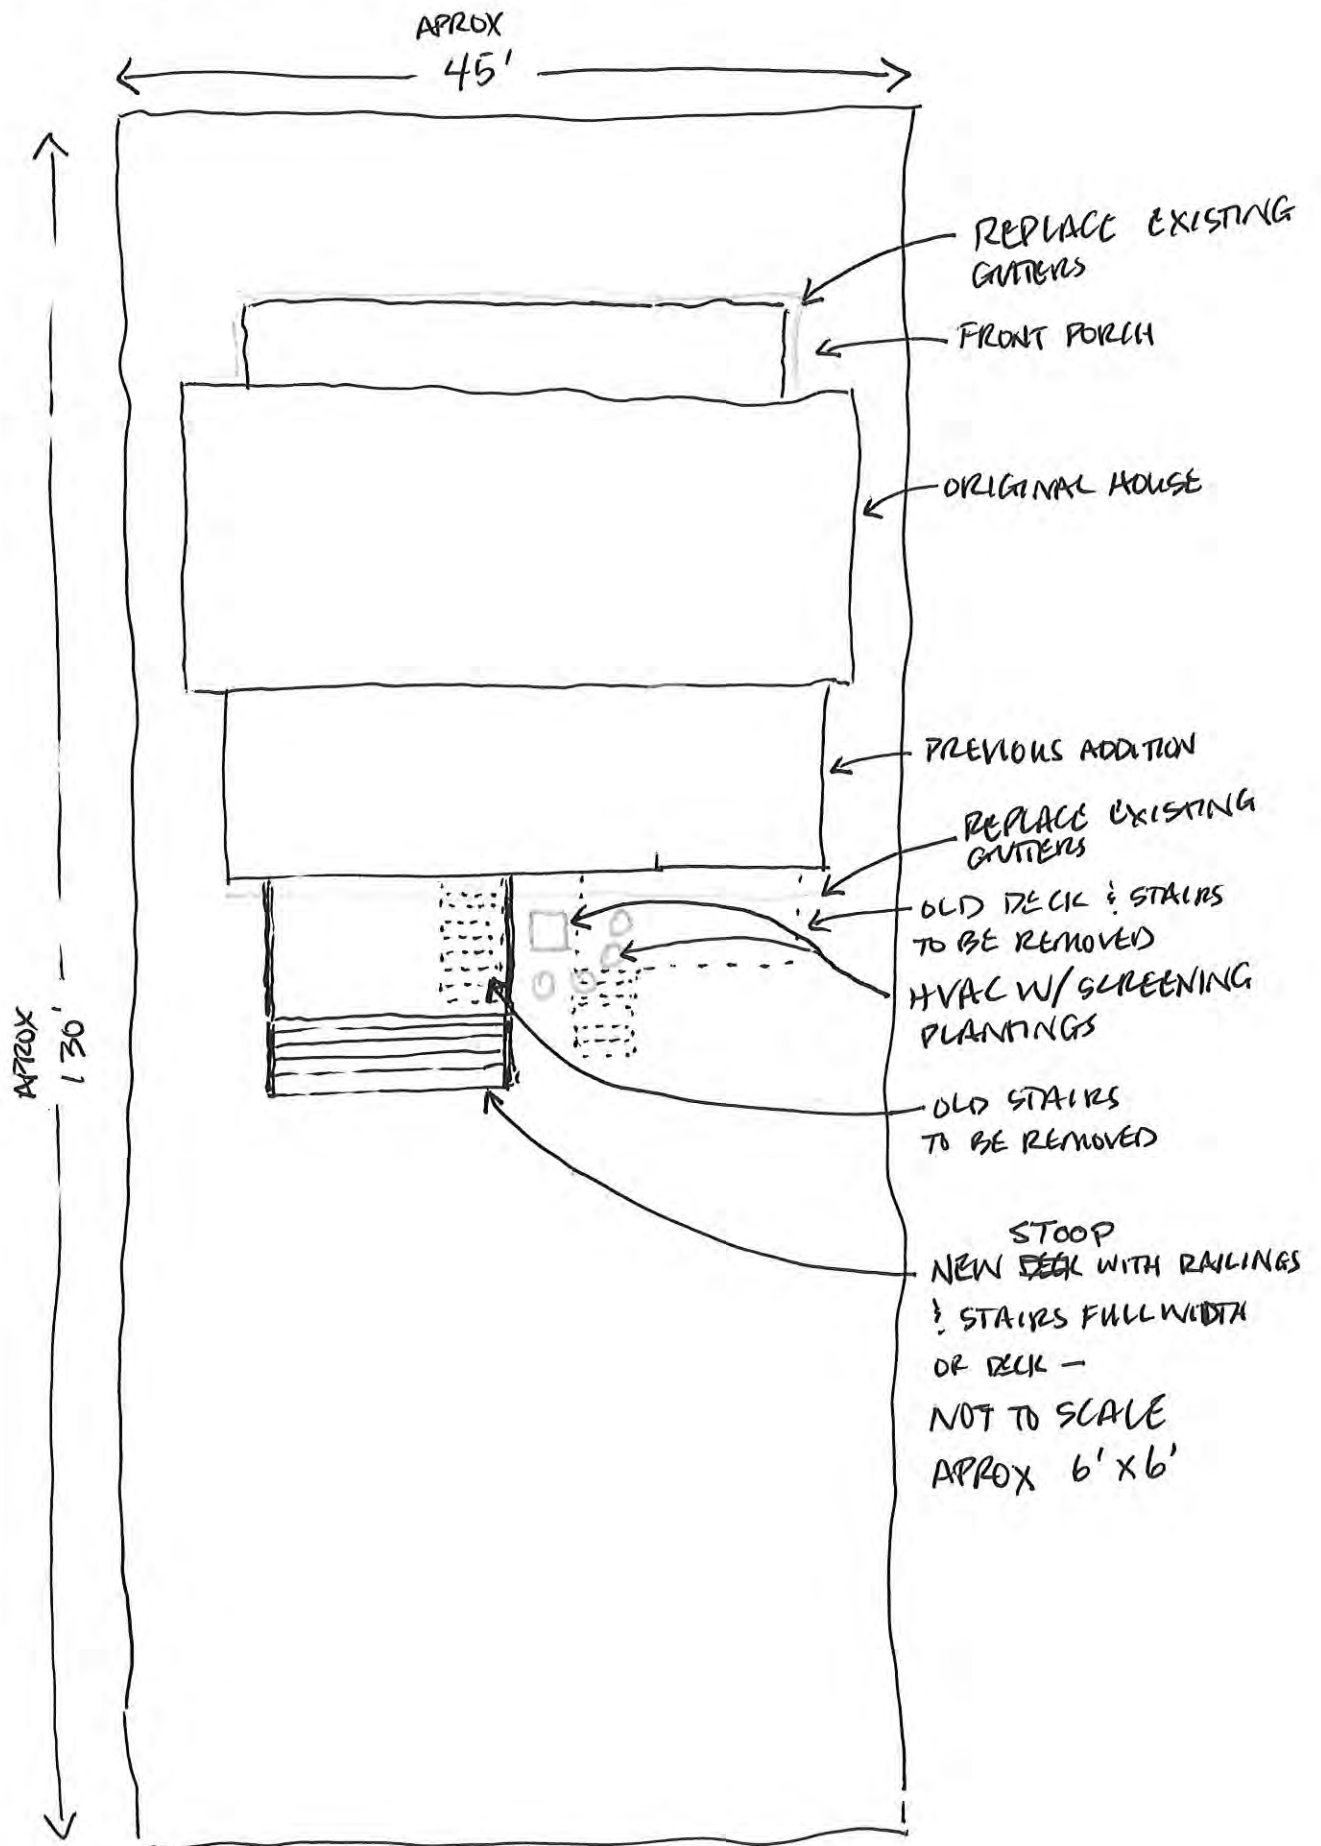 APROX
45'
REPLACE EXISTING
GUTTERS
FRONT PORCH
ORIGINAL HOUSE
PREVIOUS ADDITION
REPLACE EXISTING
GUTTERS
OLD DECK & STAIRS
TO BE REMOVED
HVAC W/ SCREENING
PLANTINGS
OLD STAIRS
TO BE REMOVED
STOOP
NEW DECK WITH RAILINGS
& STAIRS FULL WIDTH
OF DECK —
NOT TO SCALE
APROX 6' X 6'
APROX
130'